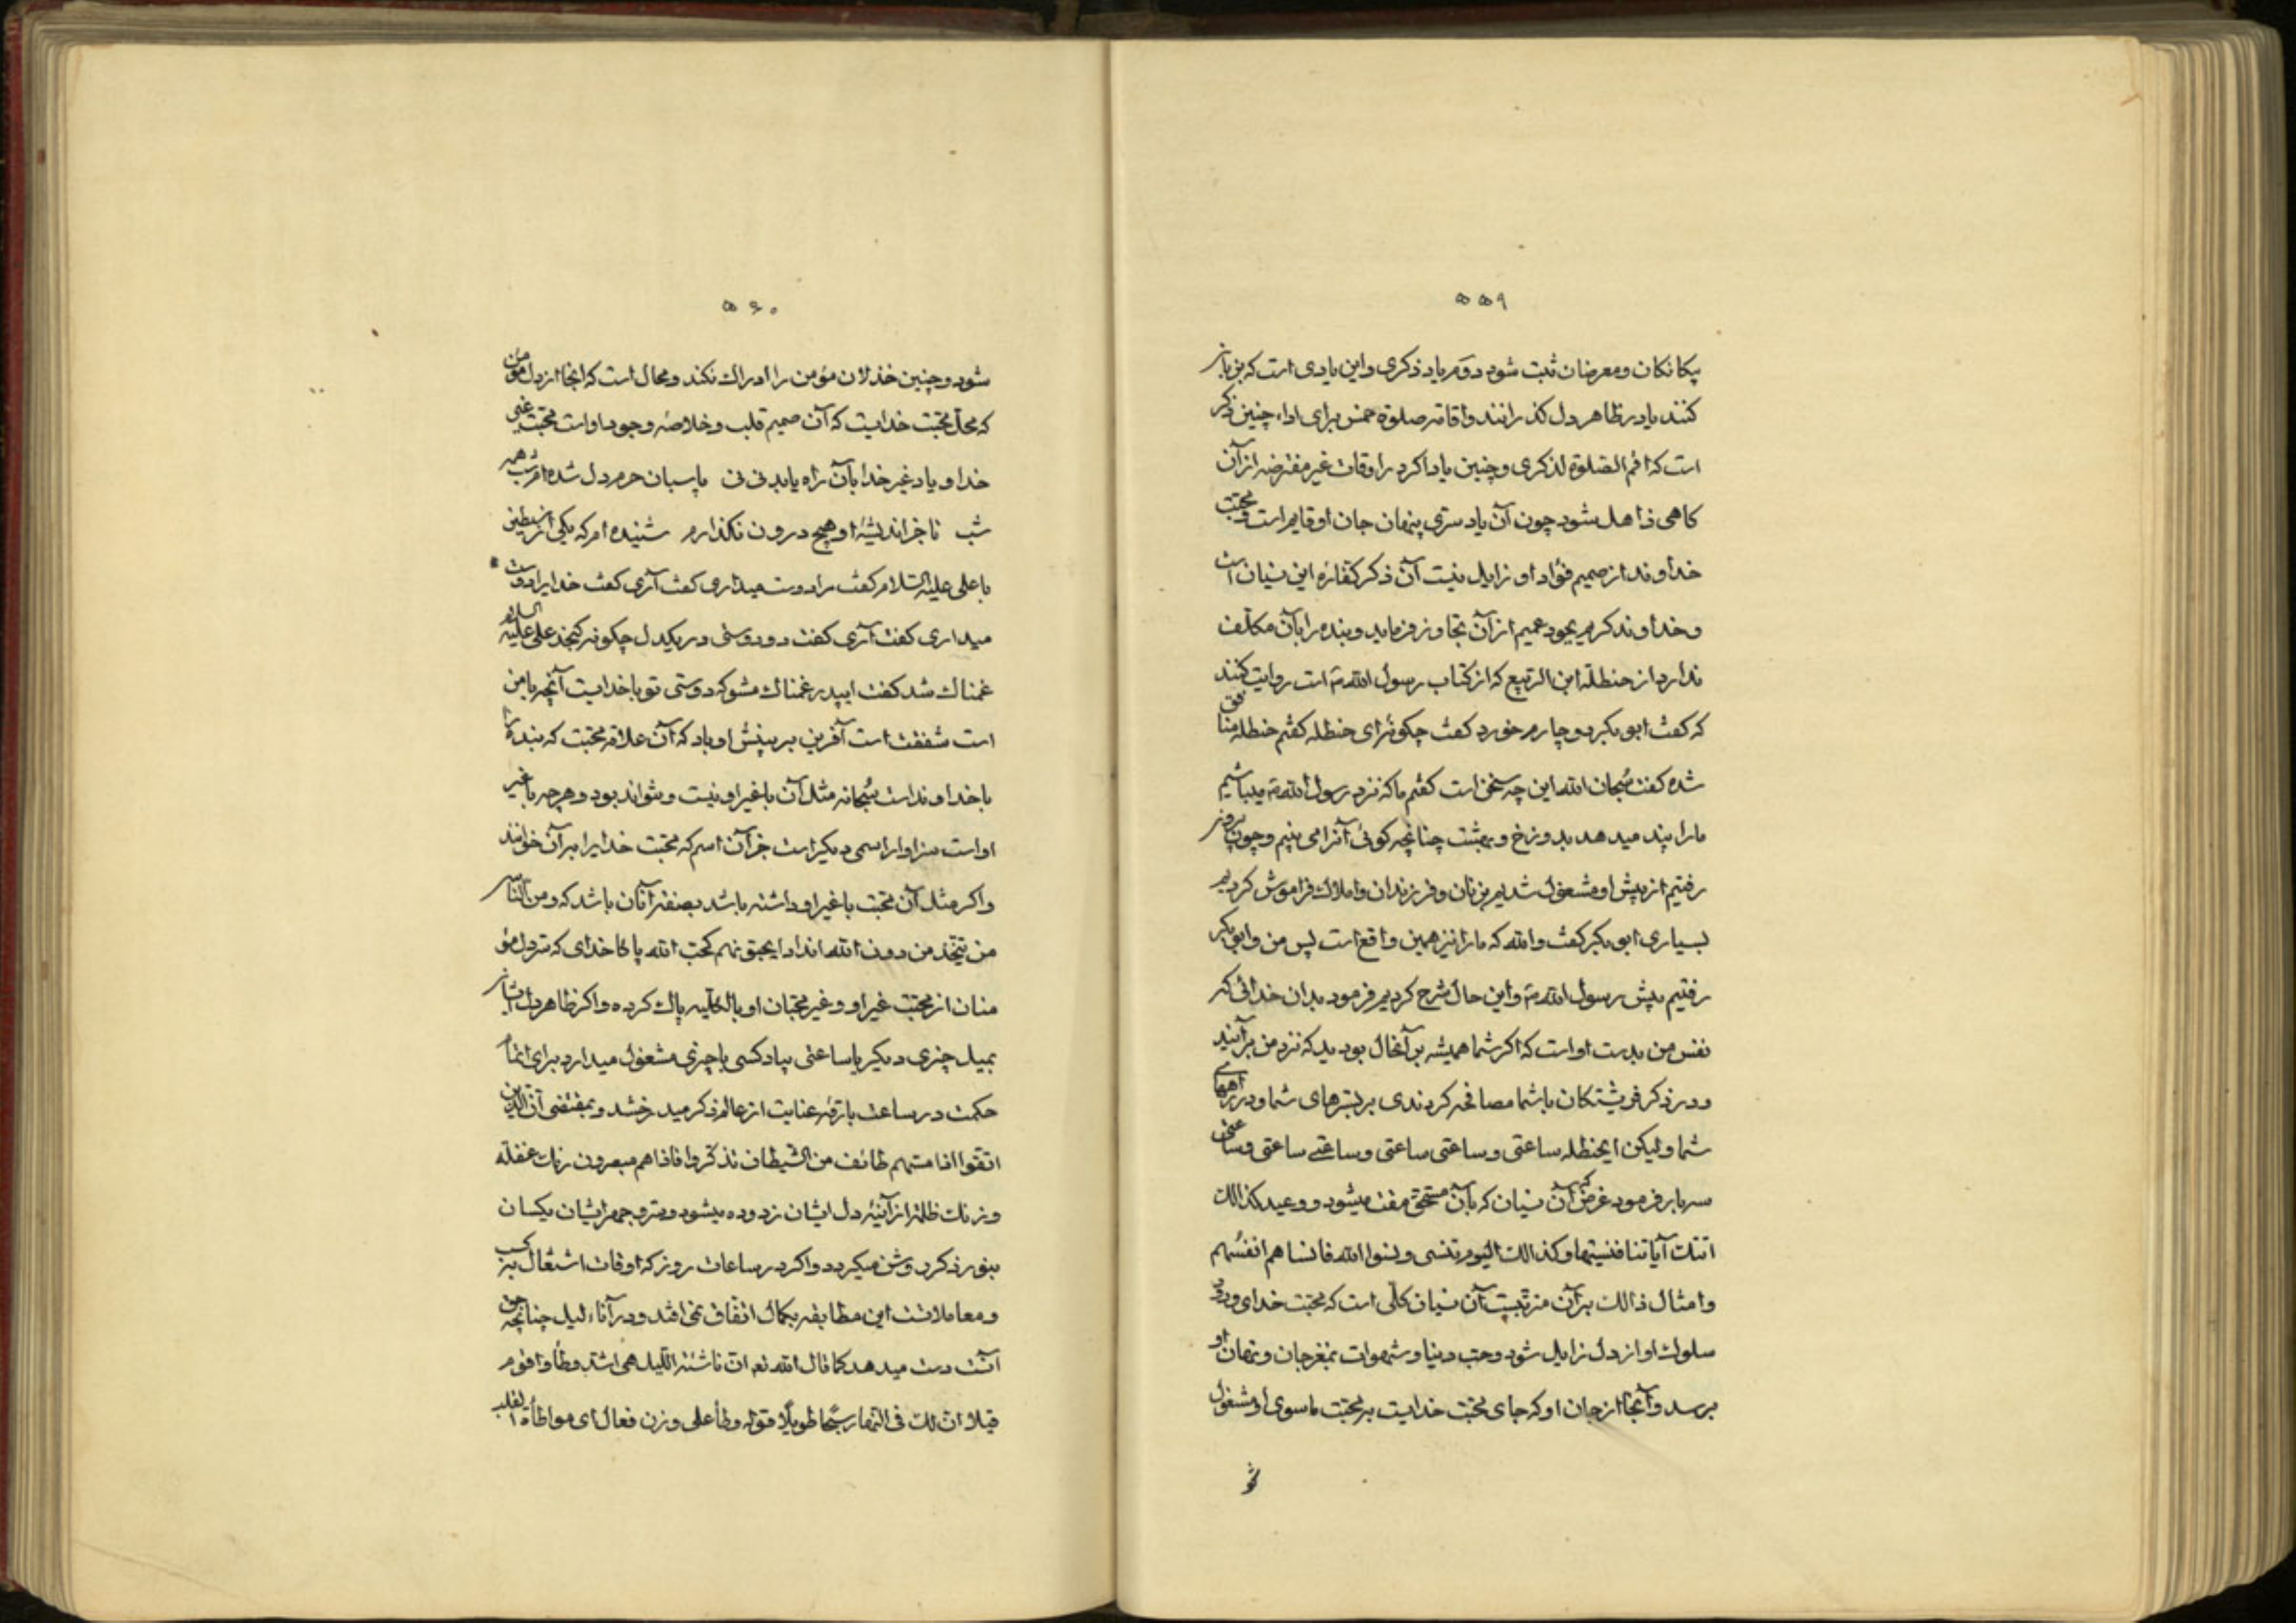 ۵۵۹
پیکانکان و معرضان ثبت شود دوم یاد ذکری و این یادی است که بزبان
کنند یا در ظاهر دل کذرانند و اقامه صلوة خمس برای اداء چنین ذکر
است که اقم الصلوة لذکری و چنین یاد اکر در اوقات غیر مفترضه از آن
کاهی ذاهل شود چون آن یاد سری پنهان جان او قایم است و محبت
خداوند از صمیم فؤاد او زایل نیست آن ذکر کفاره این نسیان است
و خداوند کریم بجود عمیم از آن تجاوز فرماید و بنده را بآن مکلف
ندارد از حنظلة ابن الربیع که از کتاب رسول الله ص است روایت کنند
که کفت ابو بکر دوچارم خورد کفت چکونه‌ای حنظله کفتم حنظله منافق
شده کفت سبحان الله این چه سخن است کفتم ما که نزد رسول الله ص میباشیم
مارا پند میدهد بدوزخ و بهشت چنانچه کوئی آنرا می بینیم و چون بیرون
رفتیم از پیش او مشغول شدیم بزنان و فرزندان و املاک فراموش کردیم
بسیاری ابو بکر کفت والله که مارا نیز همین واقع است پس من و ابو بکر
رفتیم پیش رسول الله ص و این حال شرح کردیم فرمود بدان خدائی که
نفس من بدست او است که اکر شما همیشه بر آنحال بودید که نزد من برآئید
و در ذکر فریشتکان با شما مصافحه کردندی بر بسترهای شما و در راههای
شما ولیکن ایحنظله ساعتی و ساعتی ساعتی و ساعتی ساعتی و ساعتی
سه بار فرمود غرض که آن نسیان که بآن مستحق مقت میشود و وعید کذالک
اتتک آیاتنا فنسیتها و کذالک الیوم تنسی و نسوا الله فانساهم انفسهم
و امثال ذالک بر آن مترتبست آن نسیان کلی است که محبت خدای و درد
سلوک او از دل زایل شود و حب دنیا و شهوات بمغز جان و نهان او
برسد و آنجا از جان او که جای محبت خدایست بر محبت ماسوی او مشغول
شو
۵۶۰
شود و چنین خذلان مؤمن را ادراک نکند و محال است که انجا از دل مؤمن
که محل محبت خدایست که آن صمیم قلب و خلاصه وجود او است محبت غیر
خدا و یاد غیر خدا بآن راه یابد نی نی پاسبان حرم دل شده‌ام شب همه
شب تا جز اندیشهٔ او هیچ درون نکذارم شنیده‌ام که یکی از سبطین
با علی علیه السلام کفت مرا دوست میداری کفت آری کفت خدایرا دوست
میداری کفت آری کفت دو دوستی در یکدل چکونه کنجد علی علیه السلام
غمناک شد کفت ایپدر غمناک مشو که دوستی تو با خدایست آنچه با من
است شفقت است آفرین بر بینش او باد که آن علاقه محبت که بنده را
با خداوند است سبحانه مثل آن با غیر او نیست و نتواند بود و هرچه با غیر
او است سزاوار اسمی دیکر است جز آن اسم که محبت خدایرا بر آن خوانند
و اکر مثل آن محبت با غیر او داشته باشد بصفت آنان باشد که و من الناس
من یتخذ من دون الله اندادا یحبونهم کحب الله پاکا خدای که سر دل مؤ
منان از محبت غیر او و غیر محبان او بالکلیه پاک کرده و اکر ظاهر دل ایشانرا
بمیل چیزی دیکر یا ساعتی بیاد کسی یا چیزی مشغول میدارد برای اتمام
حکمت در ساعت بارقه عنایت از عالم ذکر میدرخشد و بمقتضی ان الذین
اتقوا اذا مسهم طائف من الشیطان تذکروا فاذا هم مبصرون زنک غفلة
و زنک ظلمت از آینهٔ دل ایشان زدوده میشود و سر و جهر ایشان یکسان
بنور ذکر روشن میکردد و اکر در ساعات روز که اوقات اشتغال بکسب
و معاملاتست این مطابقه بکمال اتفاق نمی افتد و در آناء لیل چنانچه حق
آنست دست میدهد کما قال الله تع ان ناشئة اللیل هی اشد وطأ و اقوم
قیلا ان لک فی النهار سبحا طویلا قوله وطأ علی وزن فعال ای مواطأة القلب